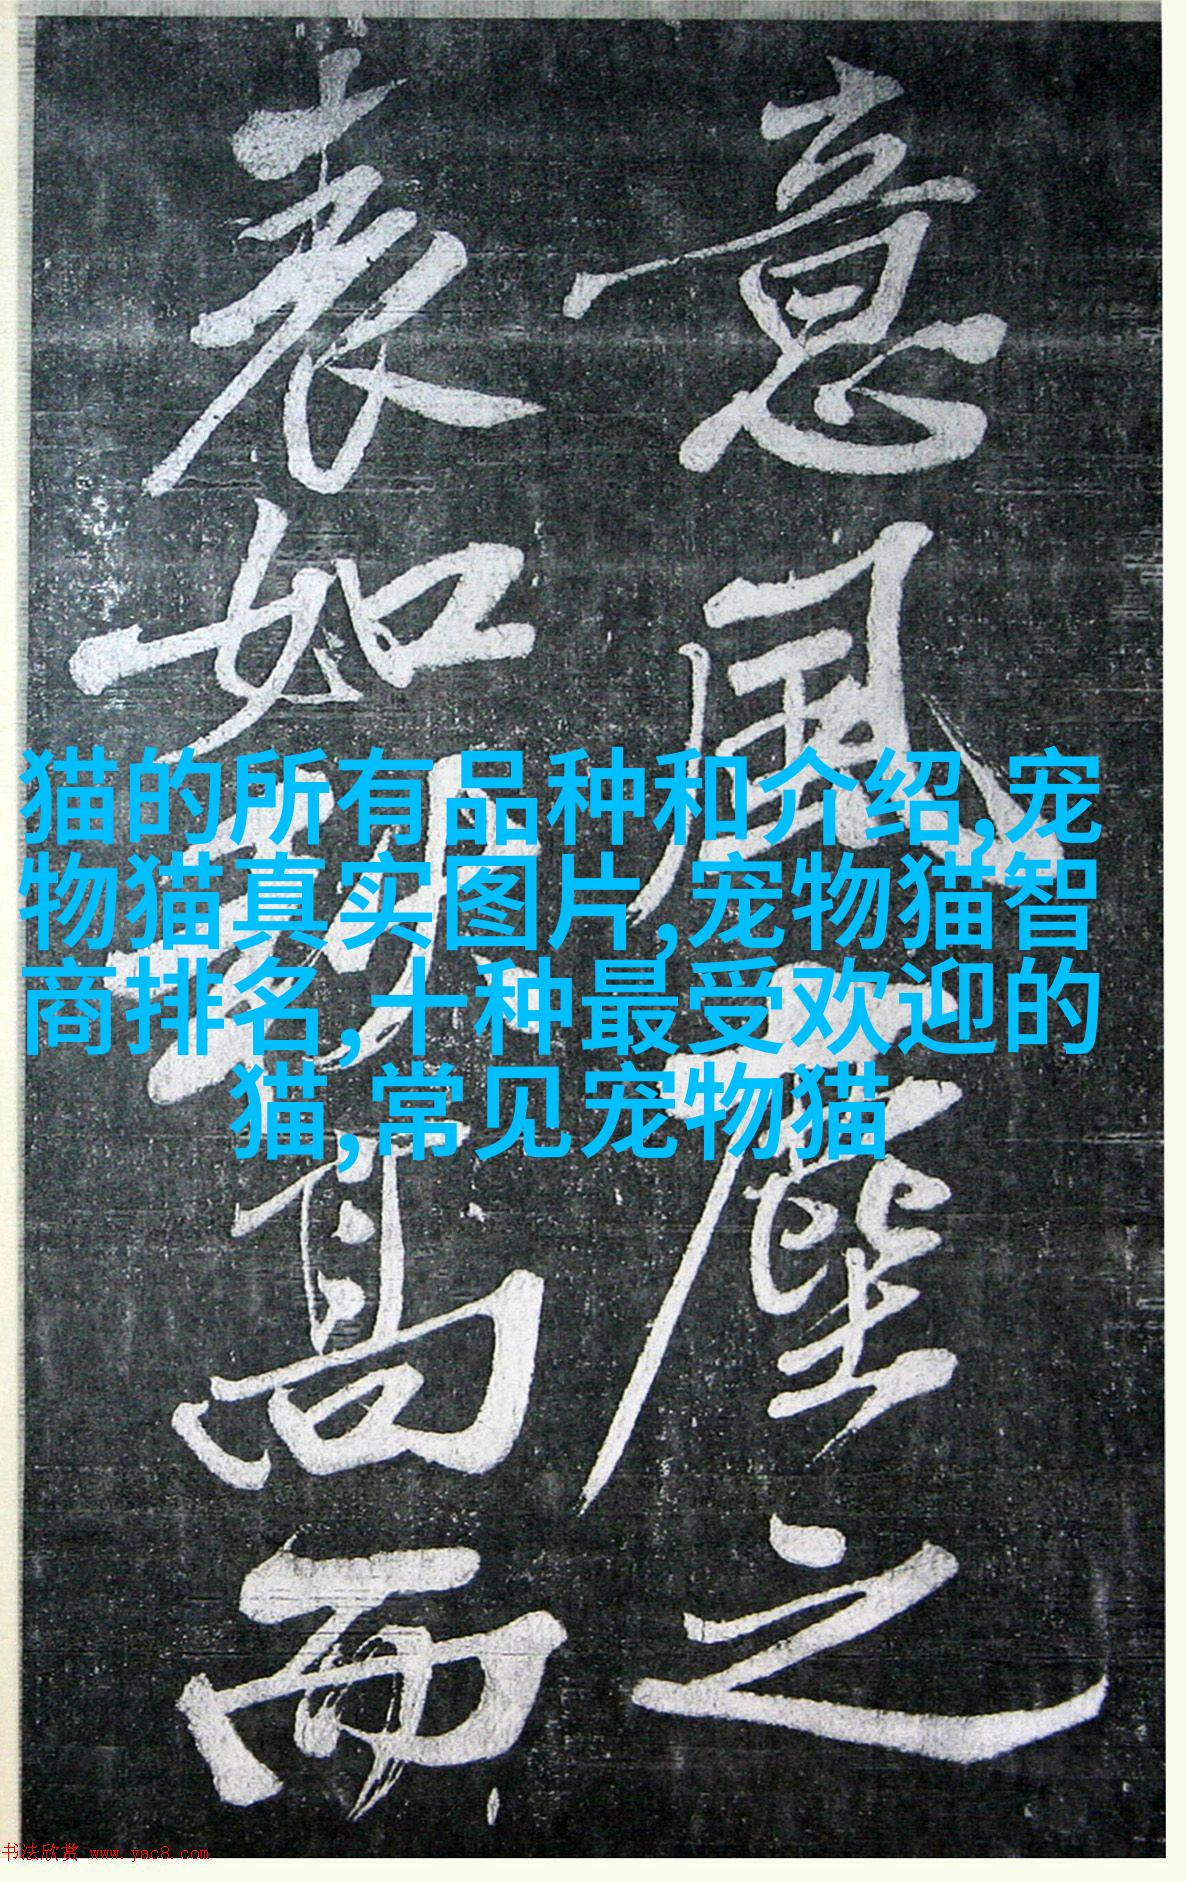 意風塵之
表如高而
猫的所有品种和介绍,宠
物猫真实图片,宠物猫智
商排名,十种最受欢迎的
猫,常见宠物猫
书法欣赏 www.yac8.com